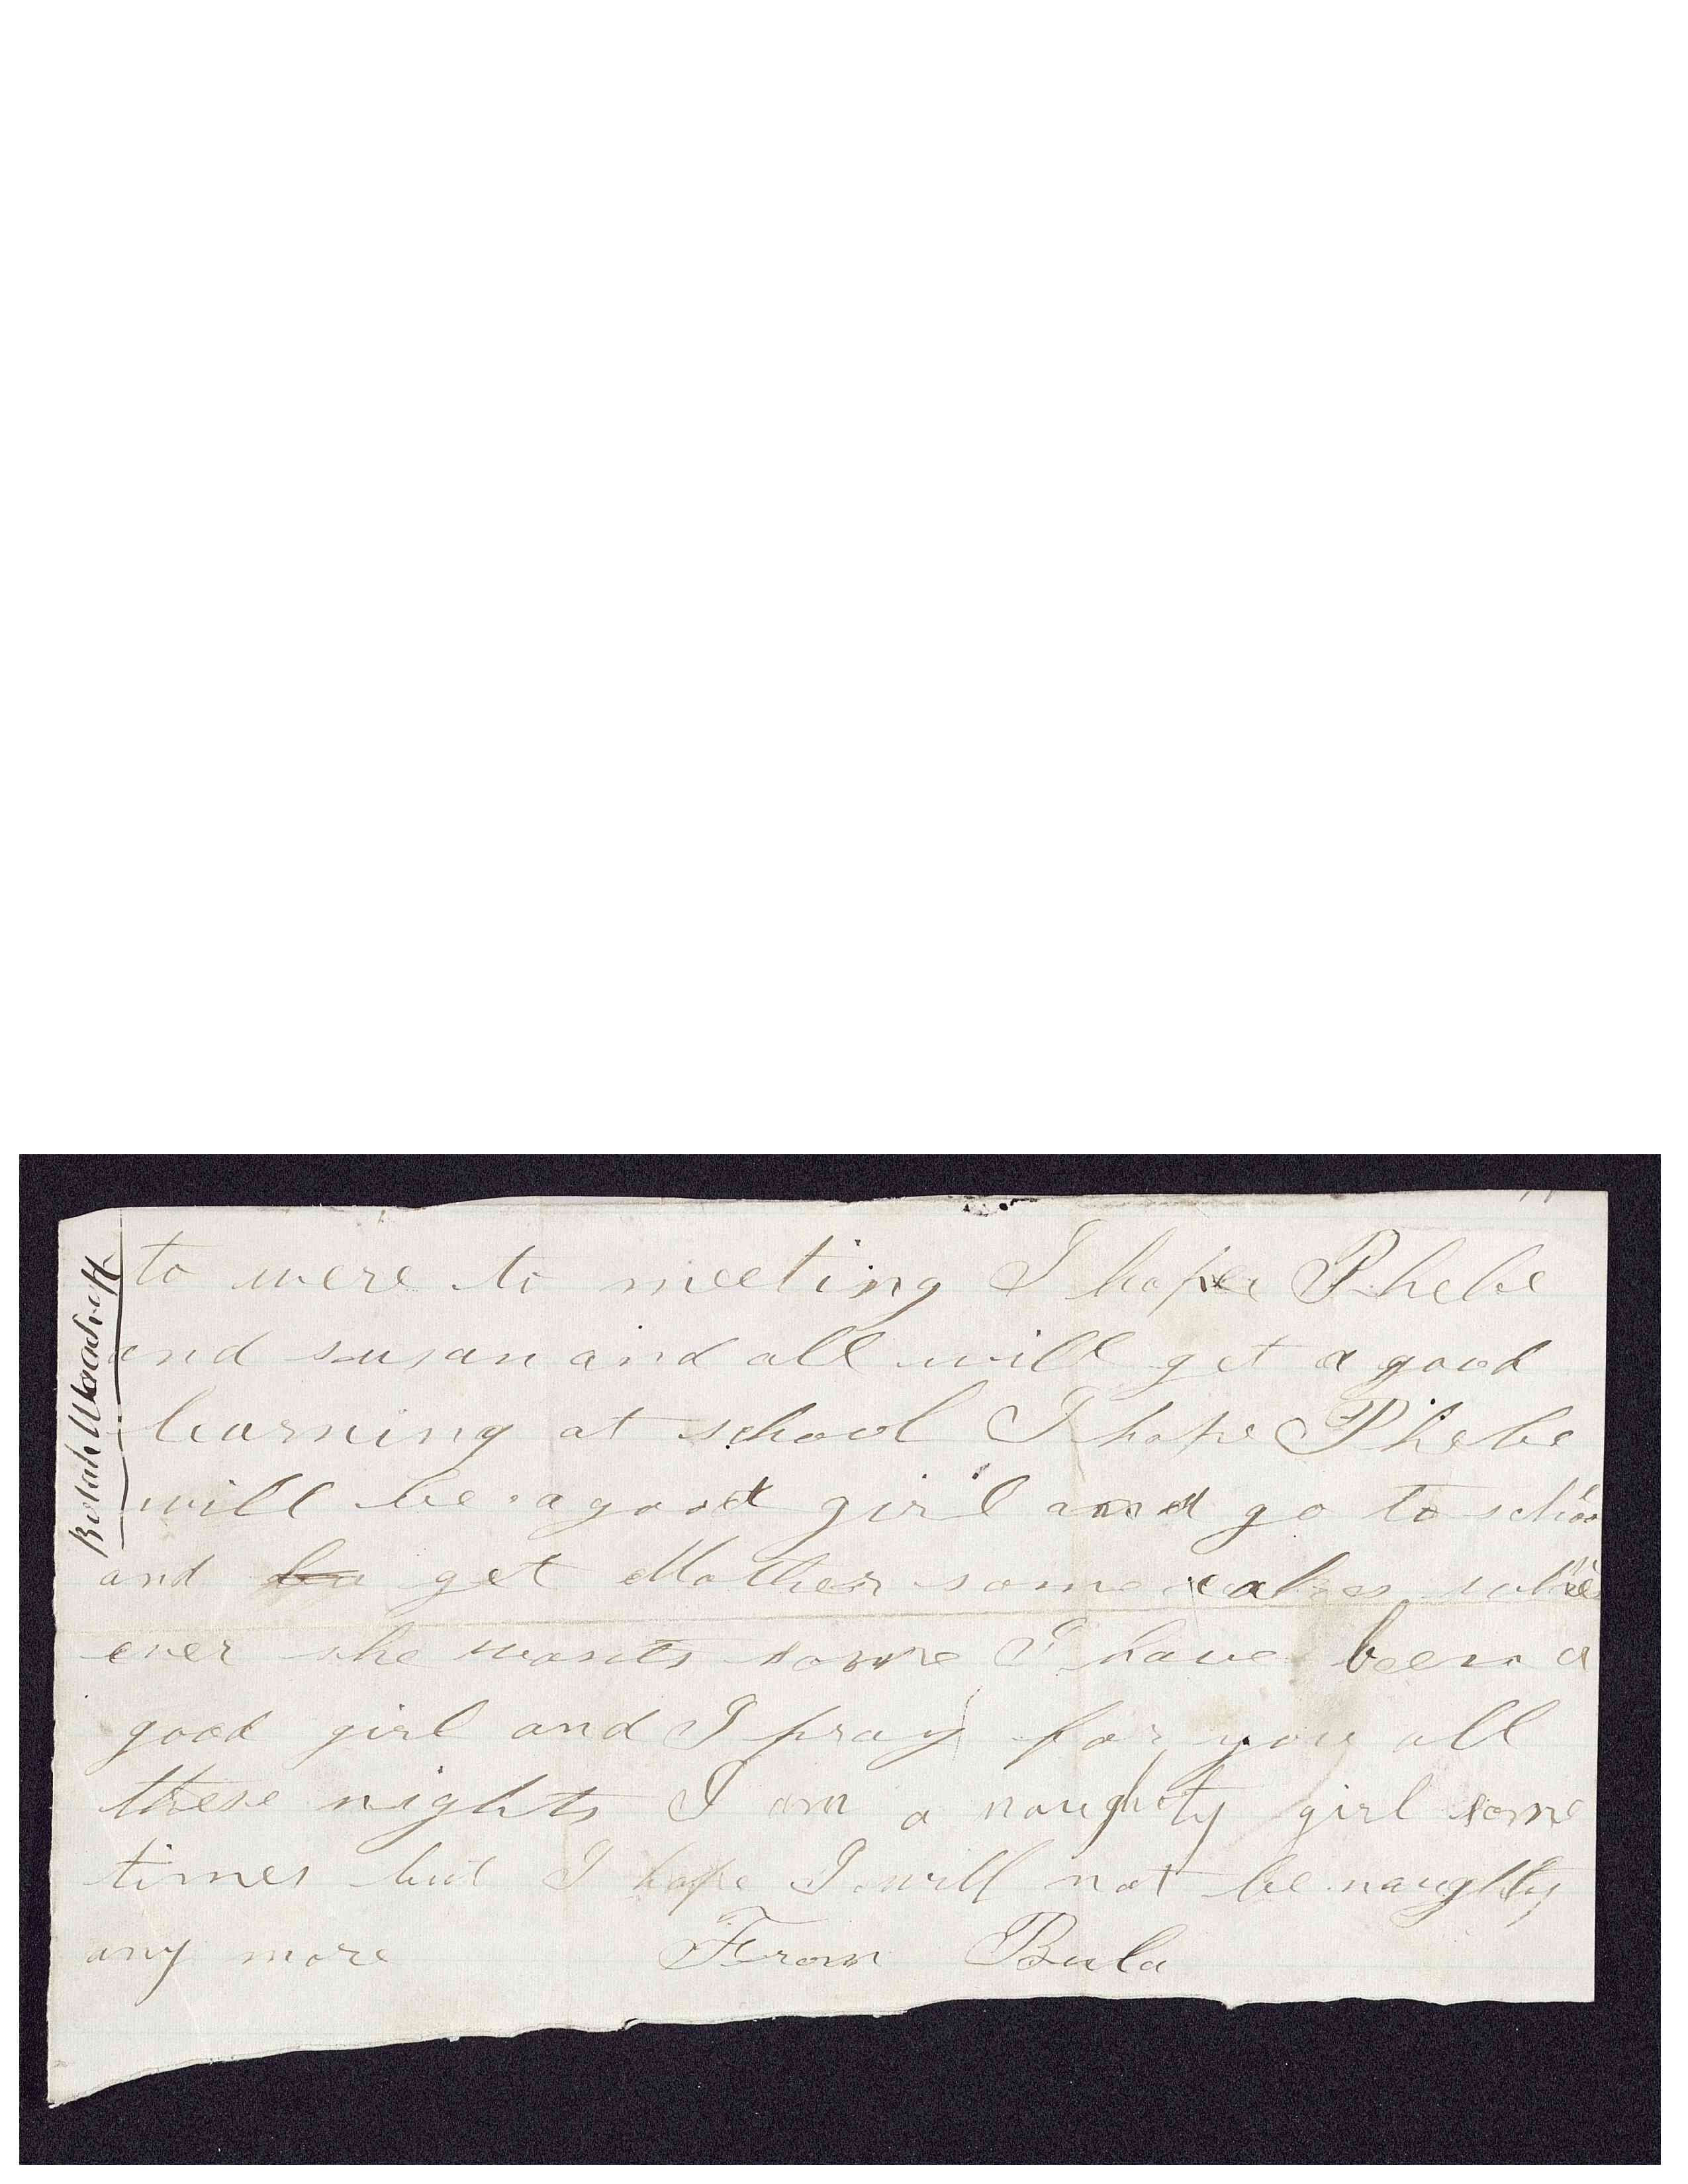 to were to meeting I hope Phebe
and susan and all will get a good
learning at school I hope Phebe
will be a good girl and go to schoo
and get Mother some cakes when
ever she wants some I have been a
good girl and I pray for you all
these nights I am a naughty girl some
times but I hope I will not be naughty
any more From Bula
Beulah Woodruff